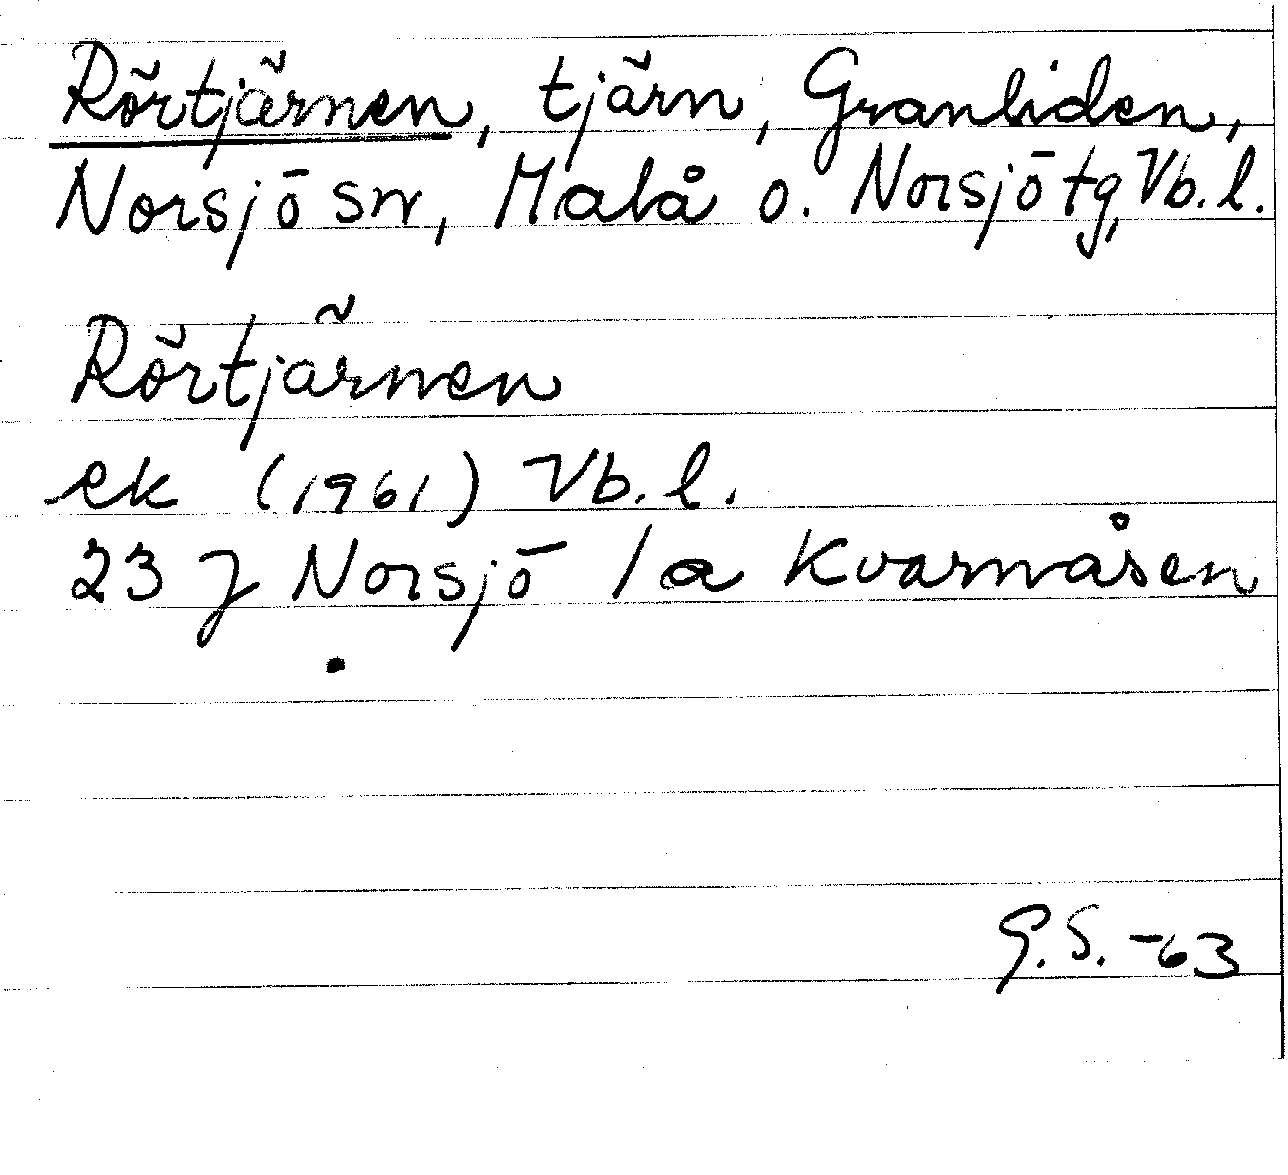 Rörtjärnen, tjärn, Granliden,
Norsjö sn, Malå o. Norsjö tg, Vb. l.
Rörtjärnen
ek (1961) Vb. l.
23 J Norsjö /a Kvarnåsen
G.S. -63